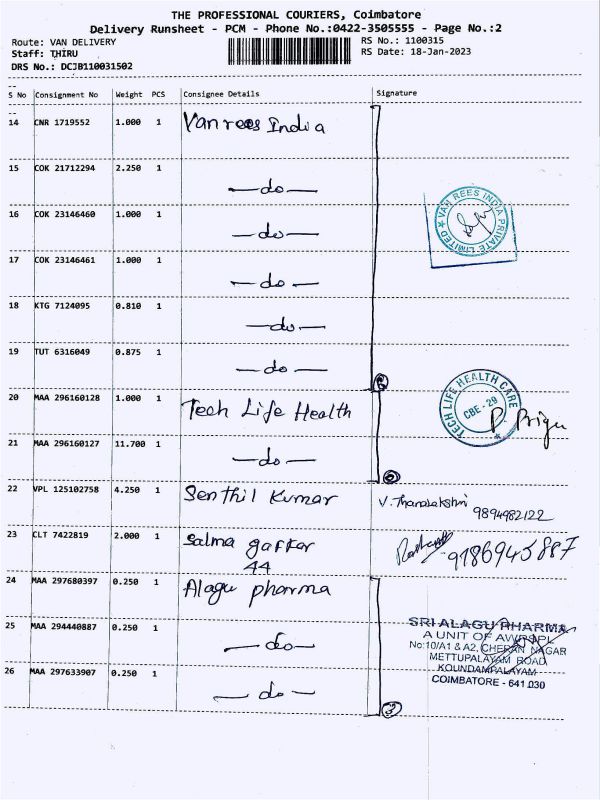 THE PROFESSIONAL COURIERS, Coimbatore
Delivery Runsheet - PCM - Phone No.:0422-3505555 - Page No.:2
Route: VAN DELIVERY RS No.: 1100315
Staff: THIRU RS Date: 18-Jan-2023
DRS No.: DCJB110031502
S No Consignment No Weight PCS Consignee Details Signature
14 CNR 1719552 1.000 1 Van rees India
15 COK 21712294 2.250 1 —do—
16 COK 23146460 1.000 1 —do—
VAN REES INDIA PRIVATE LIMITED ★
17 COK 23146461 1.000 1 —do—
18 KTG 7124095 0.810 1 —do—
19 TUT 6316049 0.875 1 —do—
20 MAA 296160128 1.000 1 Tech Life Health
TECH LIFE HEALTH CARE
CBE - 29
P. Priya
21 MAA 296160127 11.700 1 —do—
22 VPL 125102758 4.250 1 Senthil Kumar V. Thanalakshmi
9894982122
23 CLT 7422819 2.000 1 Salma gaffar
44
24 MAA 297680397 0.250 1 Alagu pharma
25 MAA 294440887 0.250 1 —do—
SRI ALAGU PHARMA
A UNIT OF
No:10/A1 & A2, CHERAN NAGAR
METTUPALAYAM ROAD,
KOUNDAMPALAYAM
COIMBATORE - 641 030
26 MAA 297633907 0.250 1 —do—